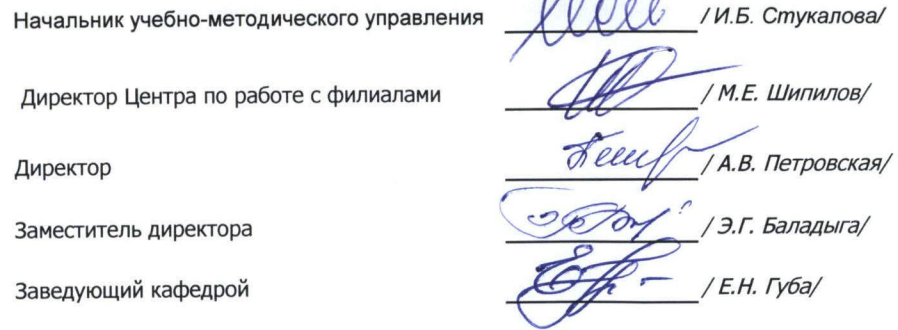 Начальник учебно-методического управления / И.Б. Стукалова/
Директор Центра по работе с филиалами / М.Е. Шипилов/
Директор / А.В. Петровская/
Заместитель директора / Э.Г. Баладыга/
Заведующий кафедрой / Е.Н. Губа/